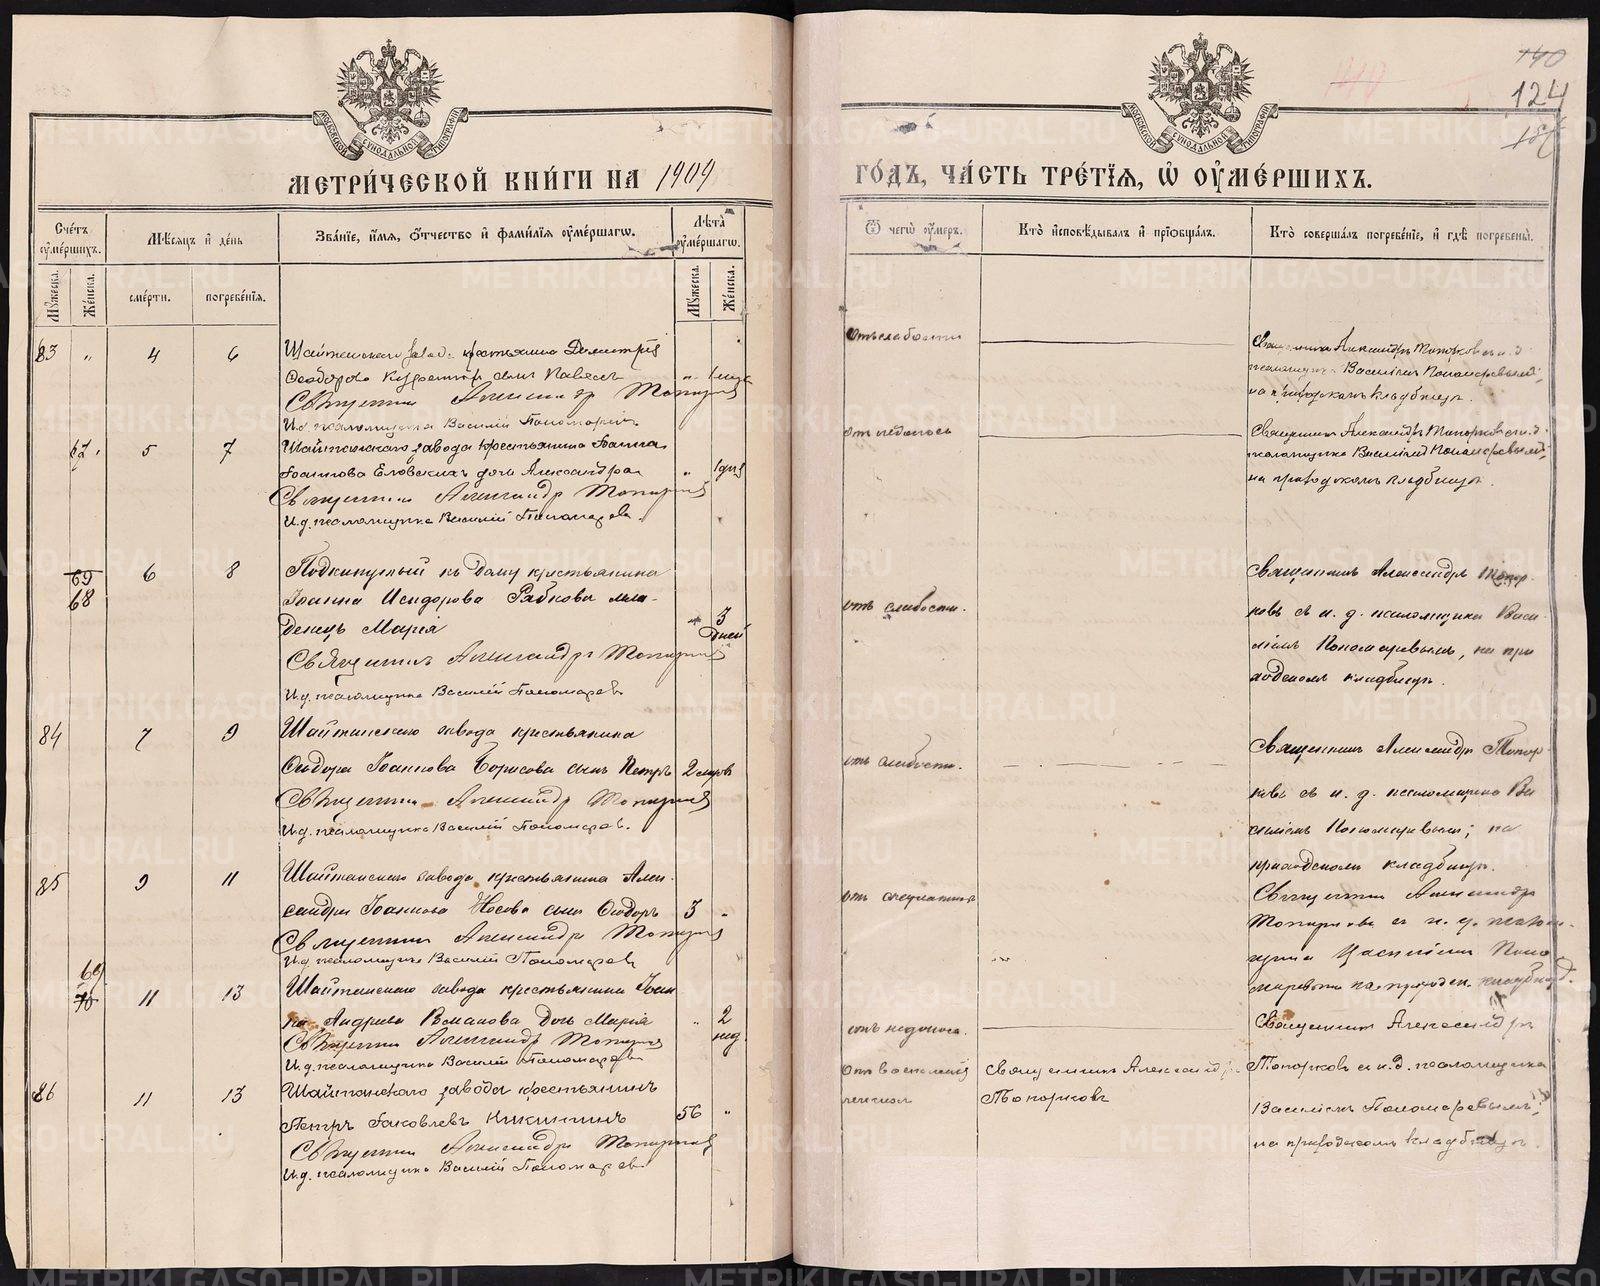 140
124
МЕТРИ́ЧЕСКОЙ КНИ́ГИ НА 1909
ГО́ДЪ, ЧА́СТЬ ТРЕ́ТІЯ, Ѡ ОУМЕ́РШИХЪ.
Сче́тъ оумершихъ.
Мѣсяцъ и де́нь
Зва́ніе, и́мя, о́тчество и фами́лія оуме́ршагѡ.
Лѣта̀ оуме́ршагѡ.
Ѿ чегѡ̀ оу́меръ.
Кто̀ исповѣ́дывалъ и пріобща́лъ.
Кто̀ соверша́лъ погребе́ніе, и гдѣ̀ погребены̀.
Мужеска.
Же́нска.
сме́рти.
погребе́нія.
Мужеска.
Же́нска.
83 " 4 6 Шайтанскаго завода крестьянина Димитрія
Ѳеодорова сынъ Павелъ "
Священникъ Александръ Топорковъ
И.д. псаломщика Василій Пономаревъ
отъ слабости
Священникъ Александръ Топорковъ съ и.д.
псаломщика Василіемъ Пономаревымъ,
на приходскомъ кладбищѣ.
67. 5 7 Шайтанскаго завода крестьянина Іоанна
Іоаннова Еловскихъ дочь Александра " 1 дня
Священникъ Александръ Топорковъ
И.д. псаломщика Василій Пономаревъ.
отъ недоноса
Священникъ Александръ Топорковъ съ и.д.
псаломщика Василіемъ Пономаревымъ,
на приходскомъ кладбищѣ.
69
68 6 8 Подкинутый къ дому крестьянина
Іоанна Исидорова Рябкова мла-
денецъ Марія 3 дней
Священникъ Александръ Топорковъ
И.д. псаломщика Василій Пономаревъ
отъ слабости.
Священникъ Александръ Топор-
ковъ съ и. д. псаломщика Васи-
ліемъ Пономаревымъ, на при-
ходскомъ кладбищѣ.
84 7 9 Шайтанскаго завода крестьянина
Ѳеодора Іоаннова Борисова сынъ Петръ 2
Священникъ Александръ Топорковъ
И.д. псаломщика Василій Пономаревъ.
отъ слабости.
Священникъ Александръ Топор-
ковъ съ и. д. псаломщика Ва-
силіемъ Пономаревымъ; на
приходскомъ кладбищѣ.
85 9 11 Шайтанскаго завода крестьянина Алек-
сандра Іоаннова Носова сынъ Ѳеодоръ 3 "
Священникъ Александръ Топорковъ
И.д. псаломщика Василій Пономаревъ
отъ скарлатины
Священникъ Александръ
Топорковъ съ и. д. псалом-
щика Василіемъ Поно-
маревымъ на приходск. кладбищѣ.
69
70 11 13 Шайтанскаго завода крестьянина Іоан-
на Андреева дочь Марія " 2 нед.
Священникъ Александръ Топорковъ
И.д. псаломщика Василій Пономаревъ
отъ недоноса.
Священникъ Александръ
Топорковъ съ и.д. псаломщика
Василіемъ Пономаревымъ,
на приходскомъ кладбищѣ.
86 11 13 Шайтанскаго завода крестьянинъ
Петръ Іаковлевъ Никитинъ 56 "
Священникъ Александръ Топорковъ
И.д. псаломщика Василій Пономаревъ.
Отъ воспаленія
легкихъ
Священникъ Александръ
Топорковъ
METRIKI.GASO-URAL.RU